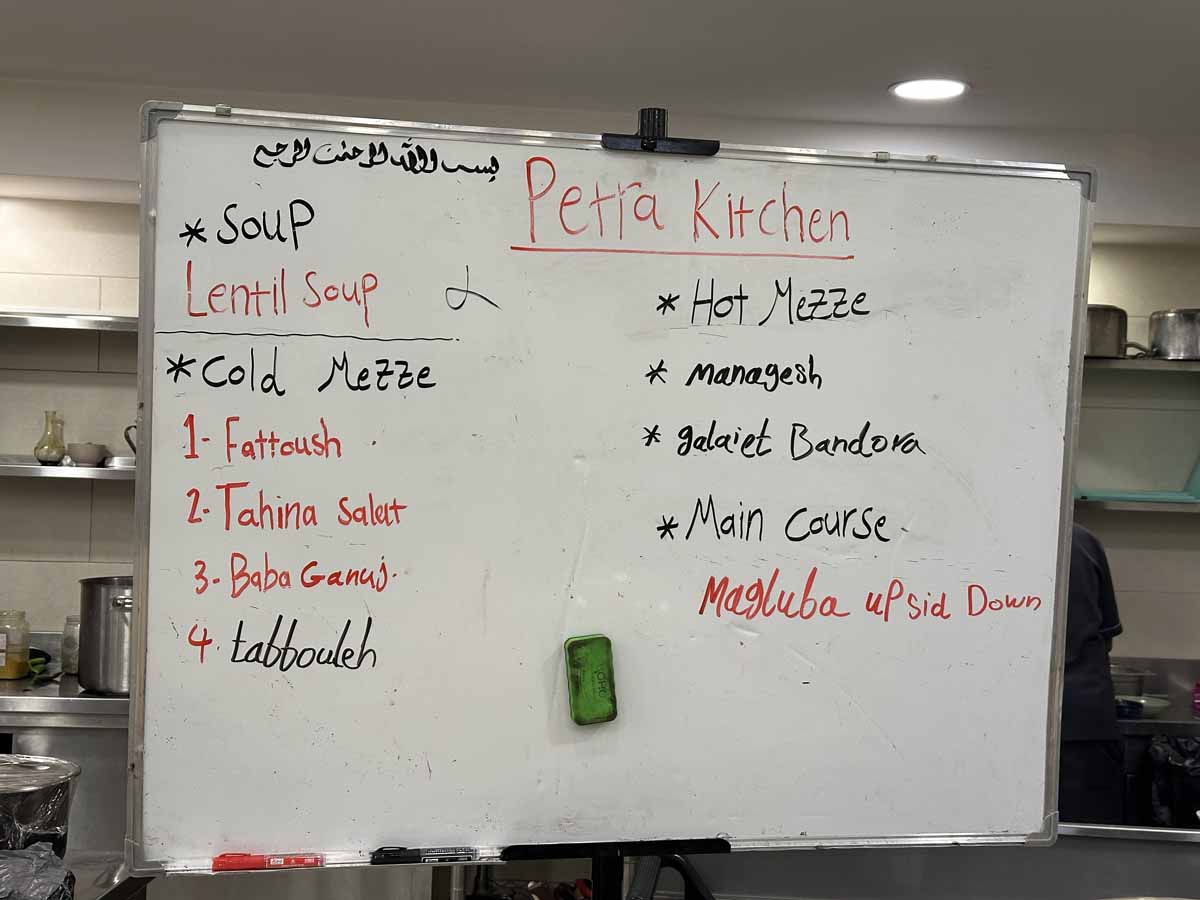 بسم الله الرحمن الرحيم
Petra Kitchen
* Soup
Lentil Soup
* Cold Mezze
1- Fattoush
2- Tahina Salat
3- Baba Ganuj.
4. tabbouleh
* Hot Mezze
* managesh
* galaiet Bandora
* Main Course
Magluba upsid Down